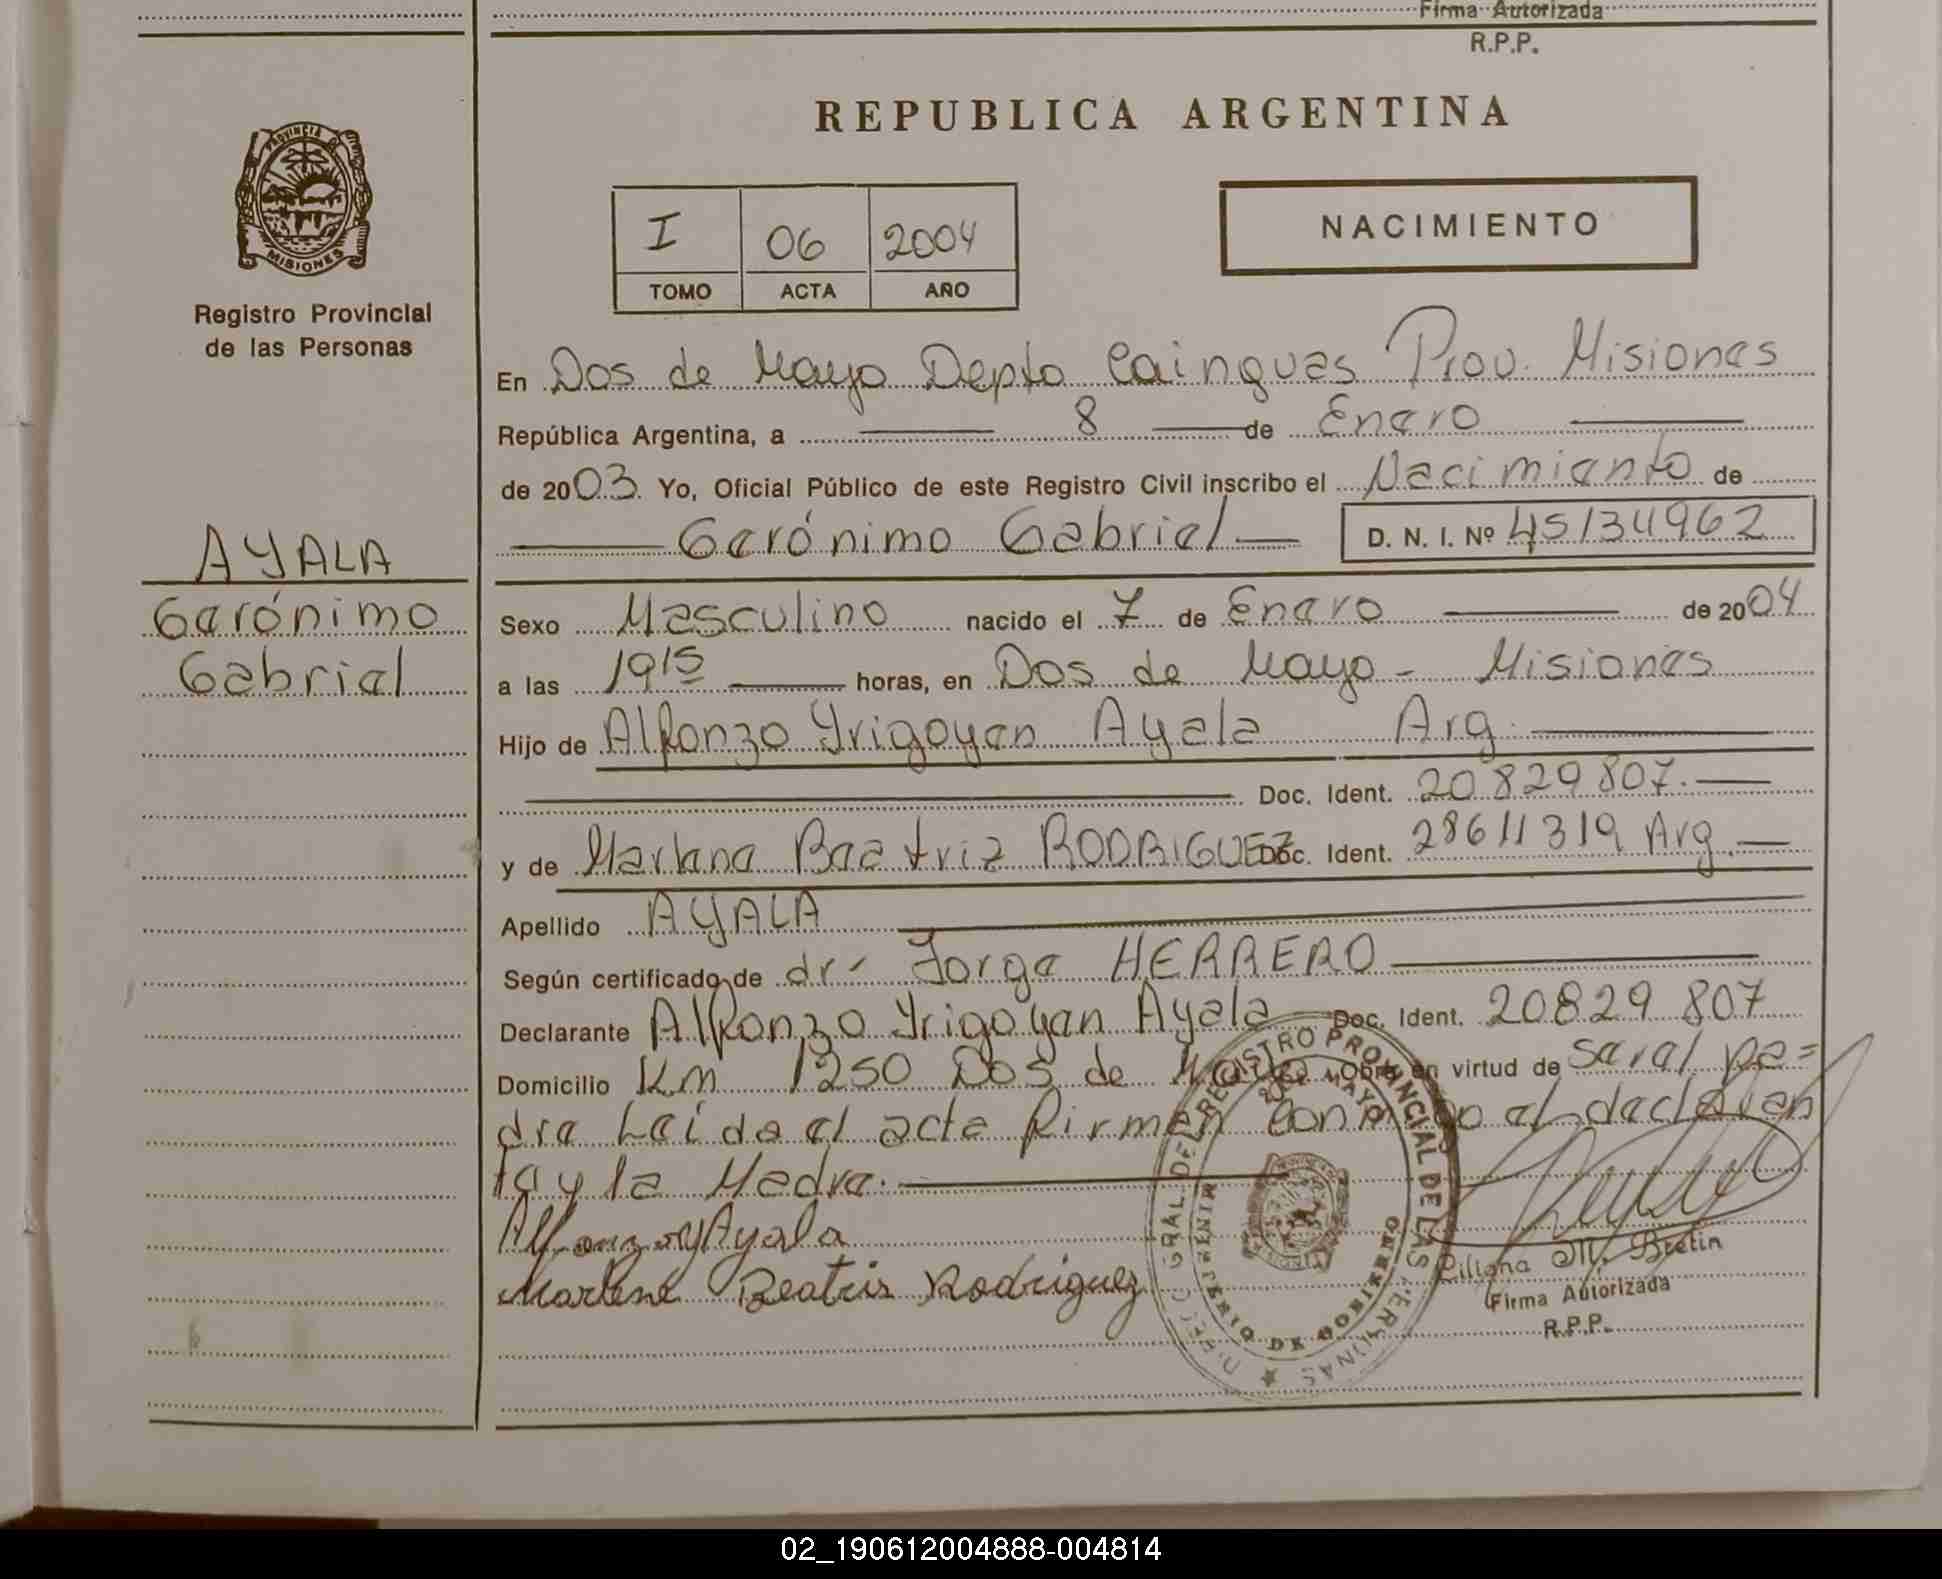 Firma Autorizada
R.P.P.
PROVINCIA
MISIONES
Registro Provincial
de las Personas
REPUBLICA ARGENTINA
I 06 2004
TOMO ACTA AÑO
NACIMIENTO
En Dos de Mayo Depto Cainguas Prov. Misiones
República Argentina, a 8 de Enero
de 2003 Yo, Oficial Público de este Registro Civil inscribo el Nacimiento de
Gerónimo Gabriel D. N. I. Nº 45134962
AYALA
Gerónimo
Gabriel
Sexo Masculino nacido el 7 de Enero de 2004
a las 1915 horas, en Dos de Mayo - Misiones
Hijo de Alfonzo Yrigoyen Ayala Arg.
Doc. Ident. 20829807.
y de Marlene Beatriz RODRIGUEZ Doc. Ident. 28611319 Arg.
Apellido AYALA
Según certificado de dr. Jorge HERRERO
Declarante Alfonzo Yrigoyen Ayala Doc. Ident. 20829807
Domicilio Km 1250 Dos de Mayo Obra en virtud de ser el pa=
dre Leída el acta firman conmigo el declaran
te y la Madre.
Alfonzo Y Ayala
Marlene Beatris Rodriguez
DIREC. GRAL. DEL REGISTRO PROVINCIAL DE LAS PERSONAS
DOS DE MAYO
MINISTERIO DE GOBIERNO
Liliana M. Bretin
Firma Autorizada
R.P.P.
02_190612004888-004814